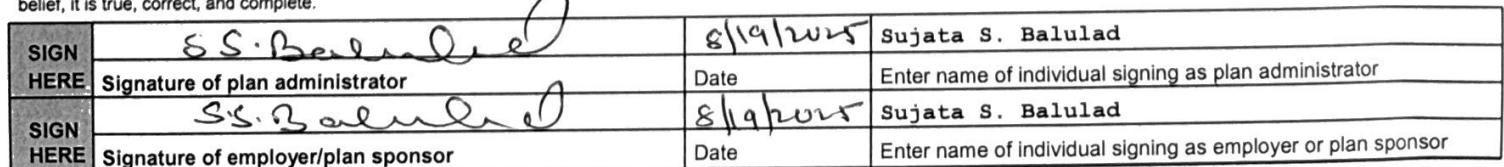 belief, it is true, correct, and complete.
SIGN HERE S.S. Balulad 8/19/2025 Sujata S. Balulad
Signature of plan administrator Date Enter name of individual signing as plan administrator
SIGN HERE S.S. Balulad 8/19/2025 Sujata S. Balulad
Signature of employer/plan sponsor Date Enter name of individual signing as employer or plan sponsor